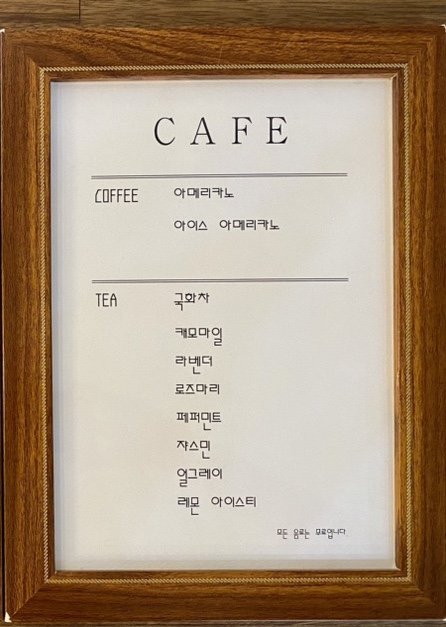 CAFE
COFFEE 아메리카노
아이스 아메리카노
TEA 국화차
캐모마일
라벤더
로즈마리
페퍼민트
쟈스민
얼그레이
레몬 아이스티
모든 음료는 무료입니다